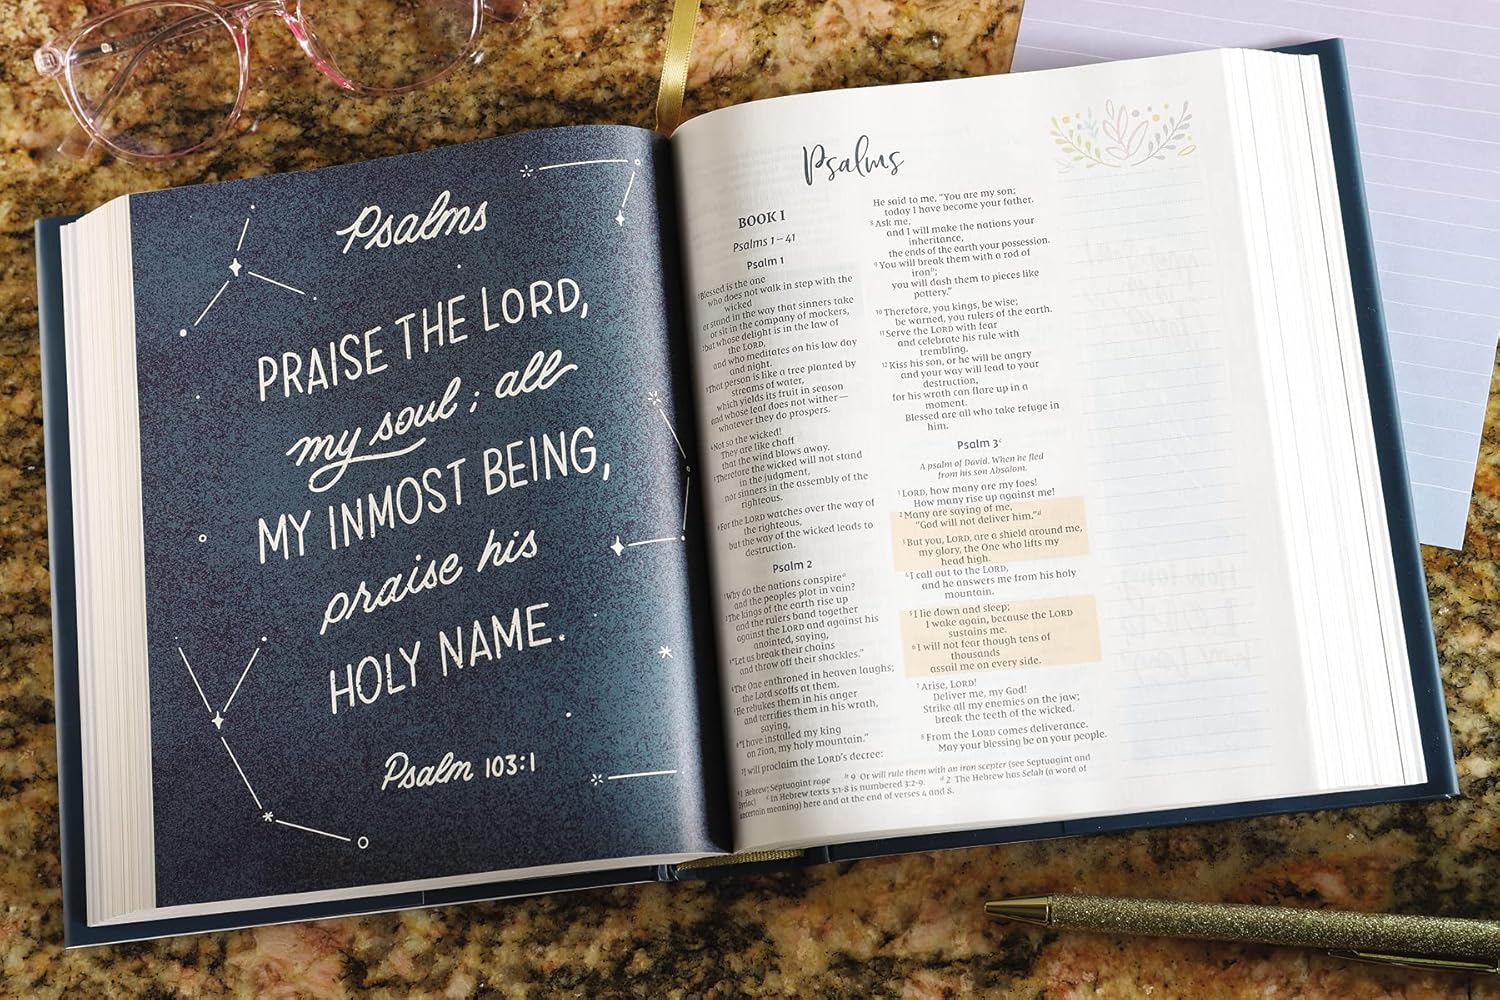 Psalms
PRAISE THE LORD,
my soul; all
MY INMOST BEING,
praise his
HOLY NAME.
Psalm 103:1
Psalms
BOOK I
Psalms 1–41
Psalm 1
1Blessed is the one
who does not walk in step with the
wicked
or stand in the way that sinners take
or sit in the company of mockers,
2but whose delight is in the law of
the LORD,
and who meditates on his law day
and night.
3That person is like a tree planted by
streams of water,
which yields its fruit in season
and whose leaf does not wither—
whatever they do prospers.
4Not so the wicked!
They are like chaff
that the wind blows away.
5Therefore the wicked will not stand
in the judgment,
nor sinners in the assembly of the
righteous.
6For the LORD watches over the way of
the righteous,
but the way of the wicked leads to
destruction.
Psalm 2
1Why do the nations conspirea
and the peoples plot in vain?
2The kings of the earth rise up
and the rulers band together
against the LORD and against his
anointed, saying,
3"Let us break their chains
and throw off their shackles."
4The One enthroned in heaven laughs;
the Lord scoffs at them.
5He rebukes them in his anger
and terrifies them in his wrath,
saying,
6"I have installed my king
on Zion, my holy mountain."
7I will proclaim the LORD's decree:
He said to me, "You are my son;
today I have become your father.
8Ask me,
and I will make the nations your
inheritance,
the ends of the earth your possession.
9You will break them with a rod of
ironb;
you will dash them to pieces like
pottery."
10Therefore, you kings, be wise;
be warned, you rulers of the earth.
11Serve the LORD with fear
and celebrate his rule with
trembling.
12Kiss his son, or he will be angry
and your way will lead to your
destruction,
for his wrath can flare up in a
moment.
Blessed are all who take refuge in
him.
Psalm 3c
A psalm of David. When he fled
from his son Absalom.
1LORD, how many are my foes!
How many rise up against me!
2Many are saying of me,
"God will not deliver him."d
3But you, LORD, are a shield around me,
my glory, the One who lifts my
head high.
4I call out to the LORD,
and he answers me from his holy
mountain.
5I lie down and sleep;
I wake again, because the LORD
sustains me.
6I will not fear though tens of
thousands
assail me on every side.
7Arise, LORD!
Deliver me, my God!
Strike all my enemies on the jaw;
break the teeth of the wicked.
8From the LORD comes deliverance.
May your blessing be on your people.
a 1 Hebrew; Septuagint rage b 9 Or will rule them with an iron scepter (see Septuagint and
Syriac) c In Hebrew texts 3:1-8 is numbered 3:2-9. d 2 The Hebrew has Selah (a word of
uncertain meaning) here and at the end of verses 4 and 8.